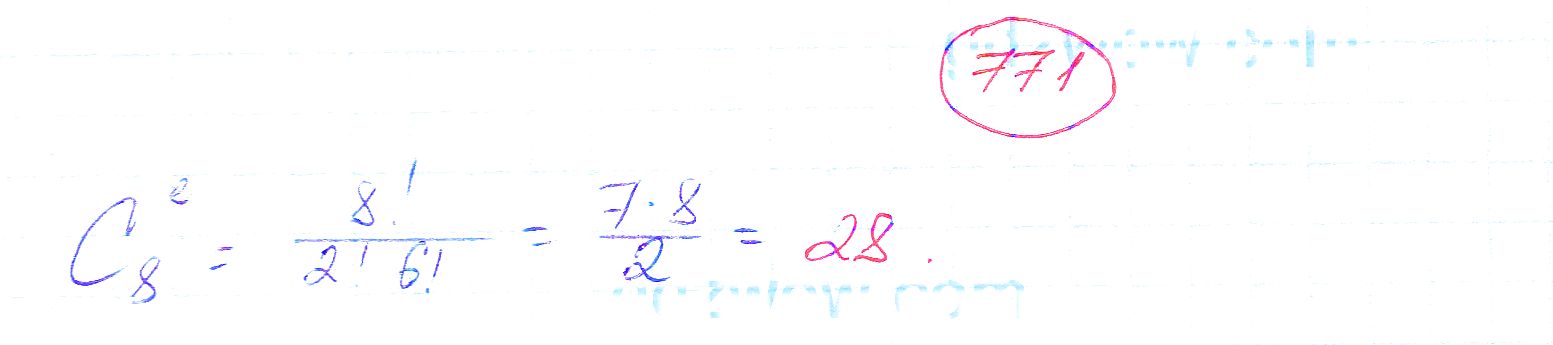 771
C₈² = 8! / 2! 6! = 7·8 / 2 = 28.